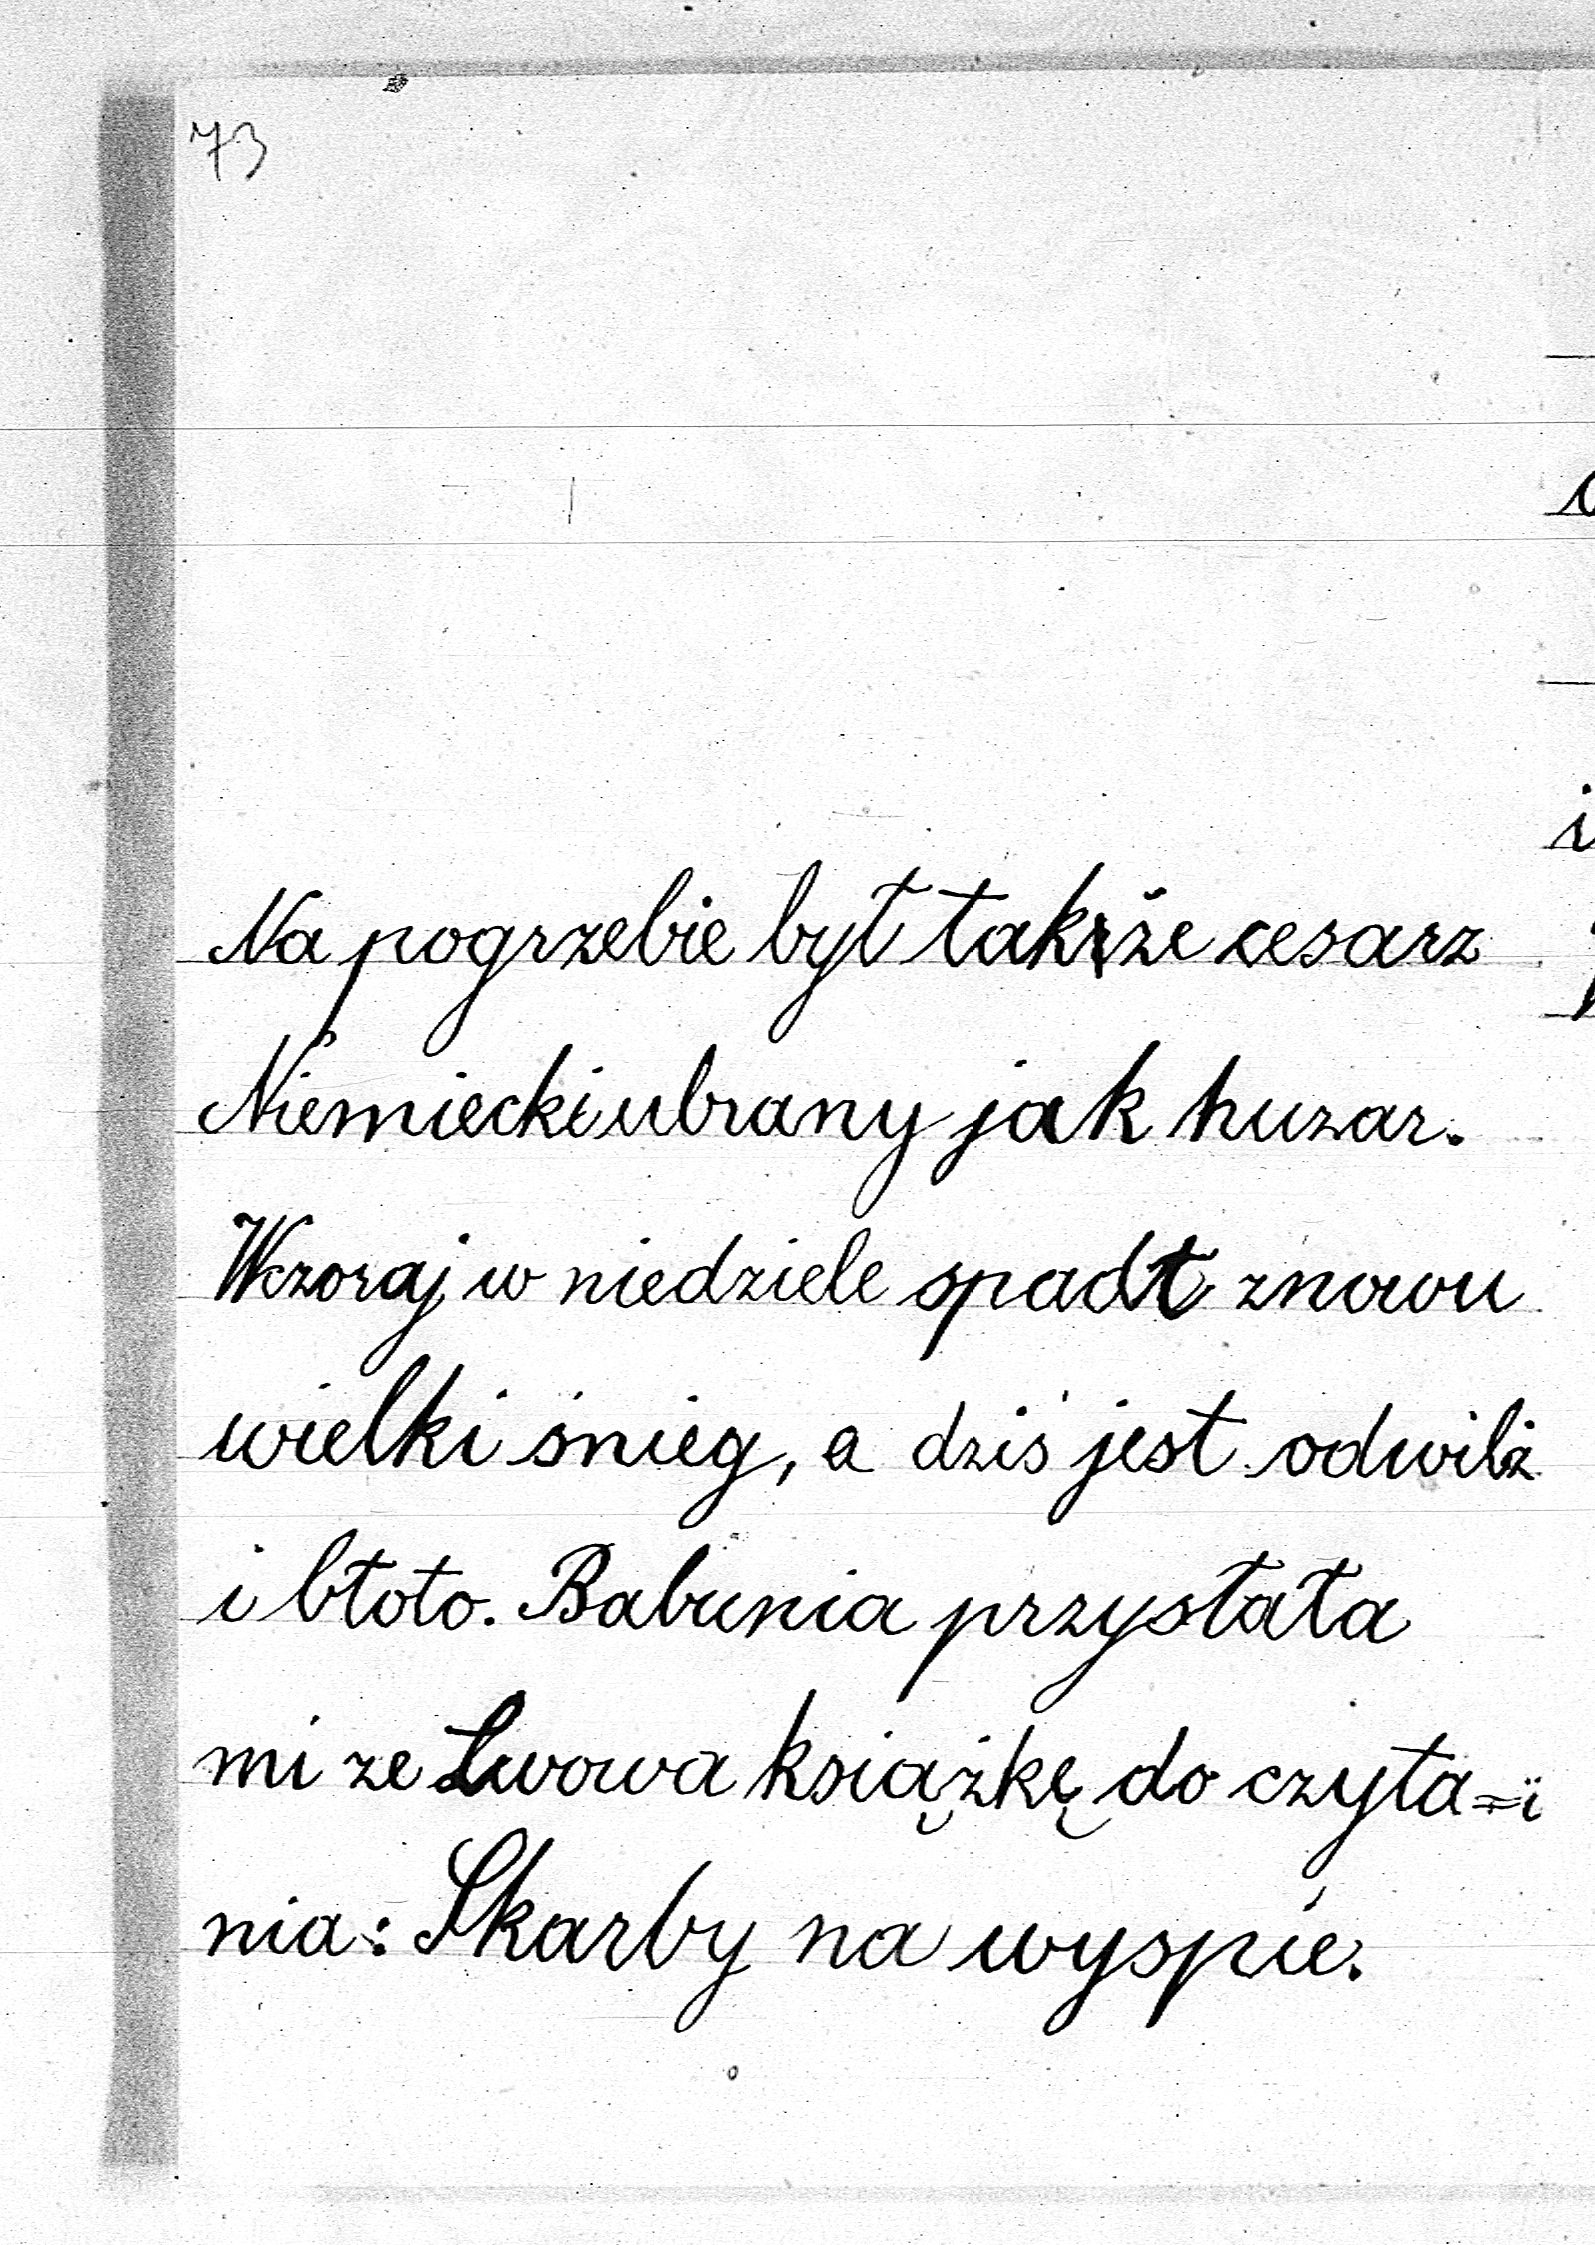 73
Na pogrzebie był także cesarz
Niemiecki ubrany jak huzar.
Wczoraj w niedziele spadł znowu
wielki śnieg, a dziś jest odwilż
i błoto. Babunia przysłała
mi ze Lwowa książkę do czyta=
nia: Skarby na wyspie.